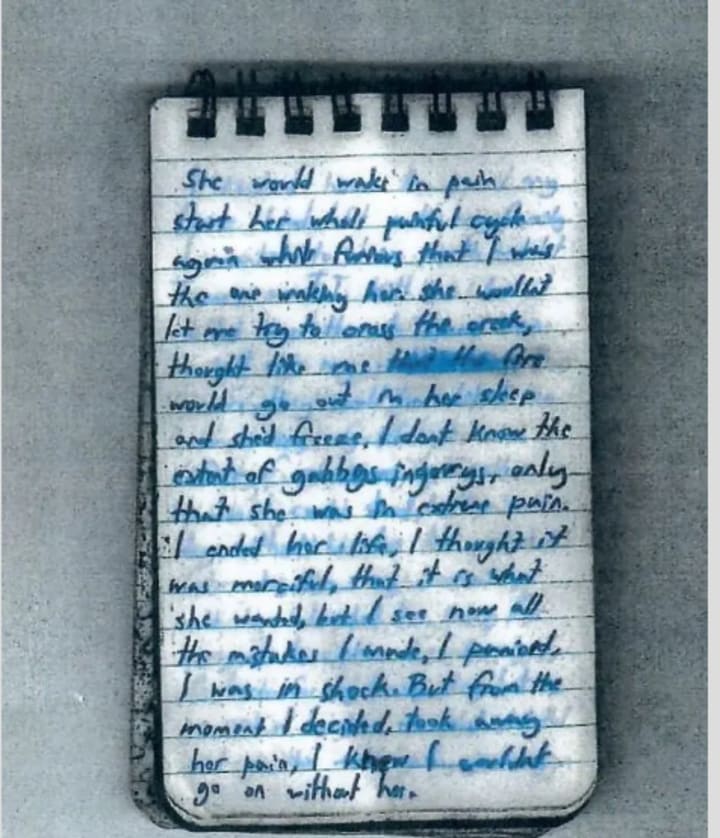 She would wake in pain
start her whole painful cycle
again while furious that I was
the one waking her. she wouldnt
let me try to cross the creek,
thought like me that the fire
would go out in her sleep
and she'd freeze. I dont know the
extent of gabbys ingurys, only
that she was in extreme pain.
I ended her life, I thought it
was merciful, that it is what
she wanted, but I see now all
the mistakes I made, I panicked,
I was in shock. But from the
moment I decided, took away
her pain, I knew I wouldnt
go on without her.